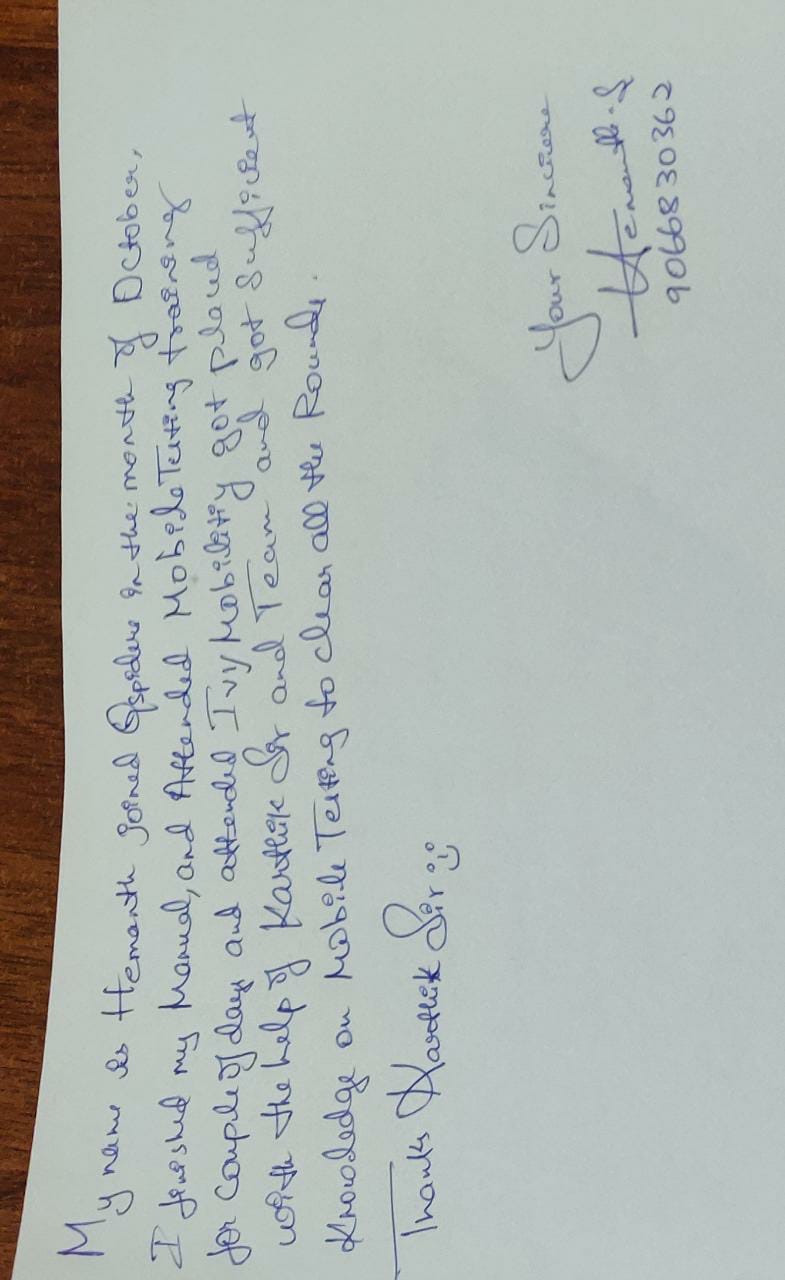 My name is Hemanth joined Qspiders in the month of October,
I finished my Manual, and Attended Mobile Testing training
for couple of days and attended Ivy Mobility got placed
with the help of Karthik Sir and Team and got sufficient
Knowledge on Mobile Testing to clear all the Rounds.
Thanks Karthik Sir :)
Your Sincere
Hemanth.S
9066830362